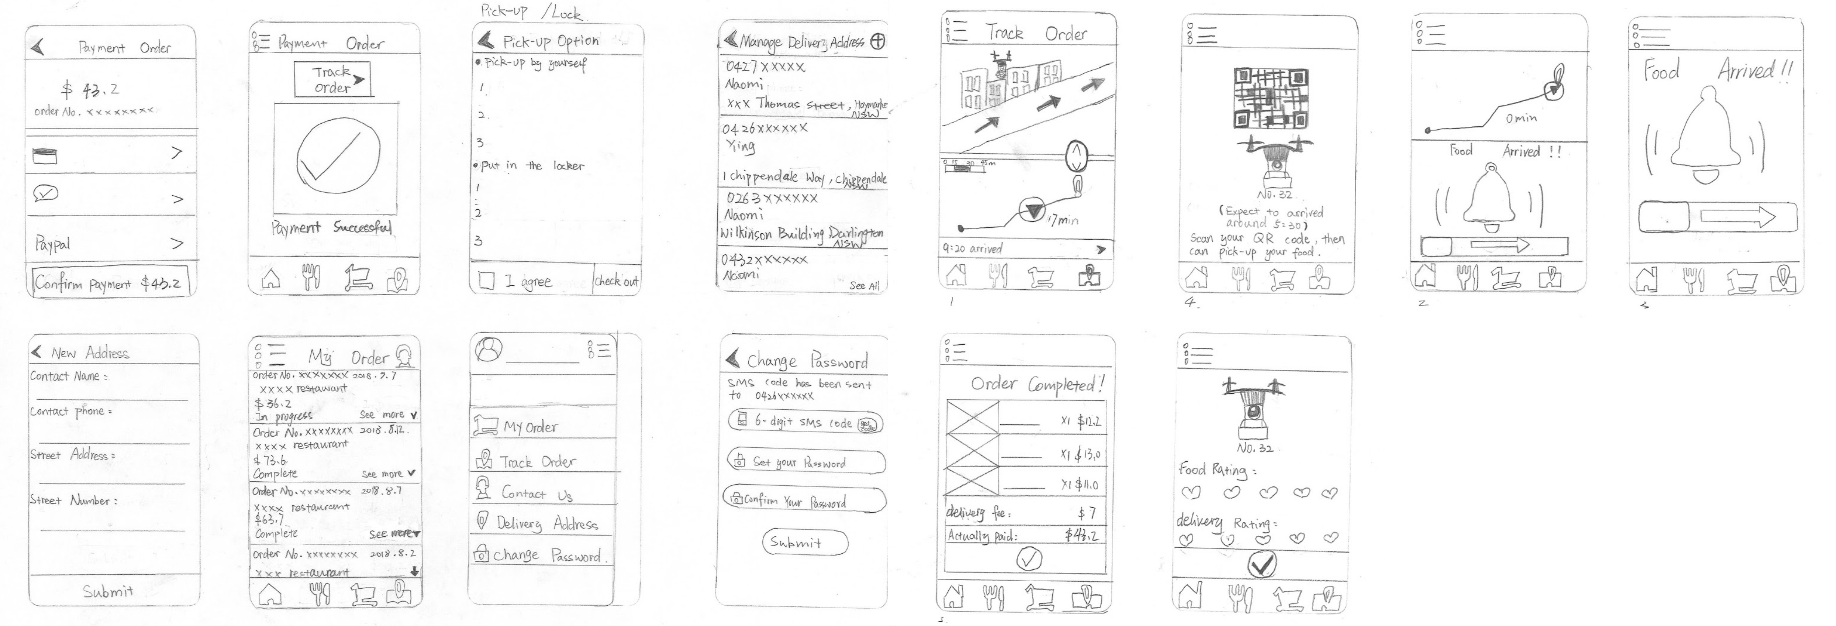 Pick-up /Lock
Payment Order
$ 43.2
order No. xxxxxxxx
Paypal
Confirm Payment $43.2
Payment Order
Track
Order
Payment Successful
Pick-up Option
• Pick-up by yourself
1
2.
3
• Put in the locker
1
2
3
I agree
check out
Manage Delivery Address
0427xxxxx
Naomi
xxx Thomas Street, Haymarket
NSW
0426xxxxxx
Ying
1 Chippendale Way, Chippendale
NSW
0263xxxxxx
Naomi
Wilkinson Building Darlington
NSW
0432xxxxxx
Naomi
See All
Track Order
0 15 30 45m
17min
9:20 arrived
1
No.32
(Expect to arrived
around 5:30)
Scan your QR code, then
can pick-up your food.
4
0min
Food Arrived !!
2
Food Arrived !!
New Address
Contact Name:
Contact phone:
Street Address:
Street Number:
Submit
My Order
Order No. xxxxxxx 2018.9.7
xxxx restaurant
$36.2
In progress See more
Order No. xxxxxxxx 2018.8.12.
xxxx restaurant
$73.6
Complete See more
Order No. xxxxxxxx 2018.8.7
xxxx restaurant
$63.7
Complete See more
Order No. xxxxxxxx 2018.8.2
xxx restaurant
My Order
Track Order
Contact Us
Delivery Address
Change Password.
Change Password
SMS code has been sent
to 0426xxxxxx
6-digit SMS code
Set your Password
Confirm Your Password
Submit
Order Completed!
x1 $12.2
x1 $13.0
x1 $11.0
delivery fee: $7
Actually paid: $43.2
No.32
Food Rating:
delivery Rating: